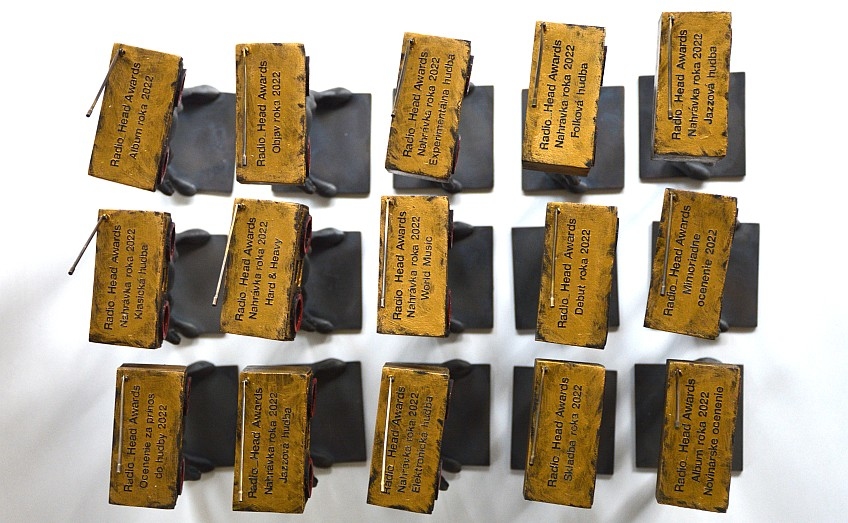 Radio_Head Awards
Album roka 2022
Radio_Head Awards
Objav roka 2022
Radio_Head Awards
Nahrávka roka 2022
Experimentálna hudba
Radio_Head Awards
Nahrávka roka 2022
Folková hudba
Radio_Head Awards
Nahrávka roka 2022
Jazzová hudba
Radio_Head Awards
Nahrávka roka 2022
Klasická hudba
Radio_Head Awards
Nahrávka roka 2022
Hard & Heavy
Radio_Head Awards
Nahrávka roka 2022
World Music
Radio_Head Awards
Debut roka 2022
Radio_Head Awards
Mimoriadne
ocenenie 2022
Radio_Head Awards
Ocenenie za prínos
do hudby 2022
Radio_Head Awards
Nahrávka roka 2022
Jazzová hudba
Radio_Head Awards
Nahrávka roka 2022
Elektronická hudba
Radio_Head Awards
Skladba roka 2022
Radio_Head Awards
Album roka 2022
Novinárske ocenenie